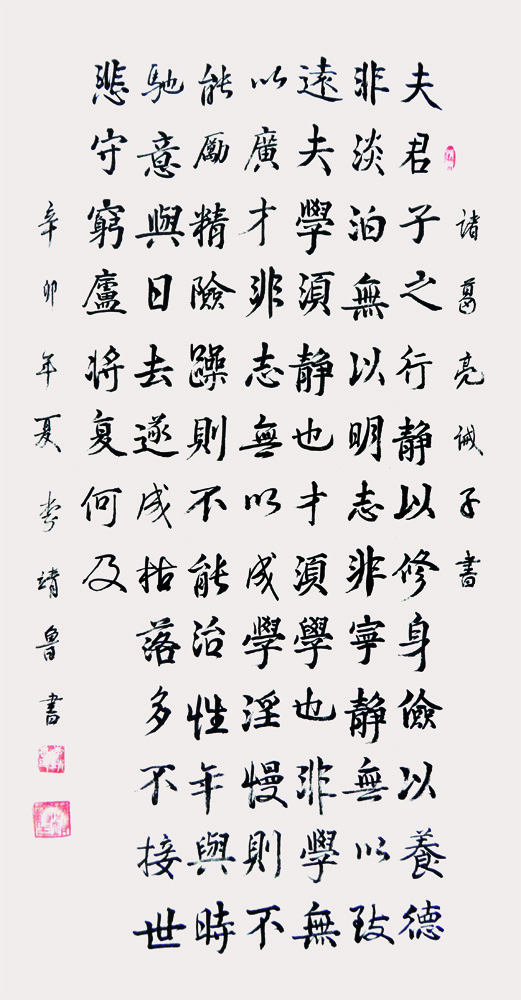 諸葛亮诫子書
夫君子之行静以修身儉以養德
非淡泊無以明志非寧静無以致
遠夫學須静也才須學也非學無
以廣才非志無以成學淫慢則不
能勵精險躁則不能治性年與時
馳意與日去遂成枯落多不接世
悲守窮廬將复何及
辛卯年夏李靖魯書